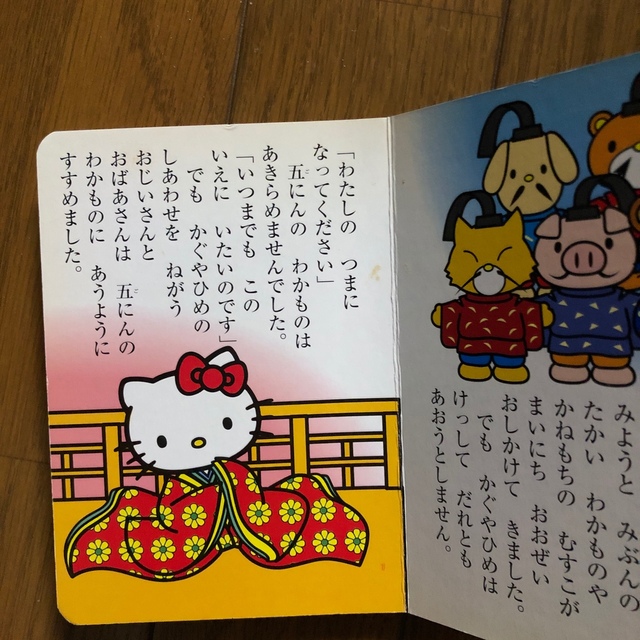 みようと みぶんの
たかい わかものや
かねもちの むすこが
まいにち おおぜい
おしかけて きました。
でも かぐやひめは
けっして だれとも
あおうとしません。
「わたしの つまに
なってください」
五にんの わかものは
あきらめませんでした。
「いつまでも この
いえに いたいのです」
でも かぐやひめの
しあわせを ねがう
おじいさんと
おばあさんは 五にんの
わかものに あうように
すすめました。